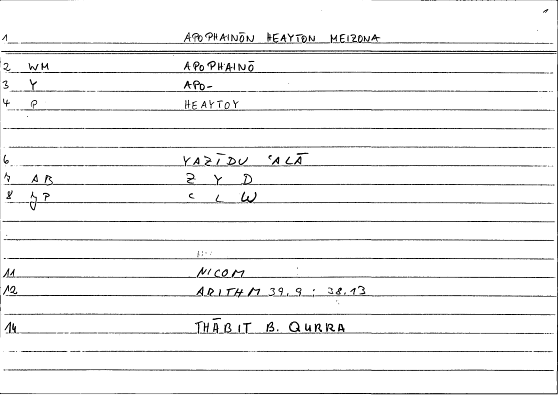 1
1 APOPHAINŌN HEAYTON MEIZONA
2 WM APOPHAINŌ
3 Y APO-
4 P HEAYTOY
6 YAZĪDU ʿALĀ
7 AB Z Y D
8 P ʿ L W
11 NICOM
12 ARITHM 39,9 ; 38,13
14 THĀBIT B. QURRA